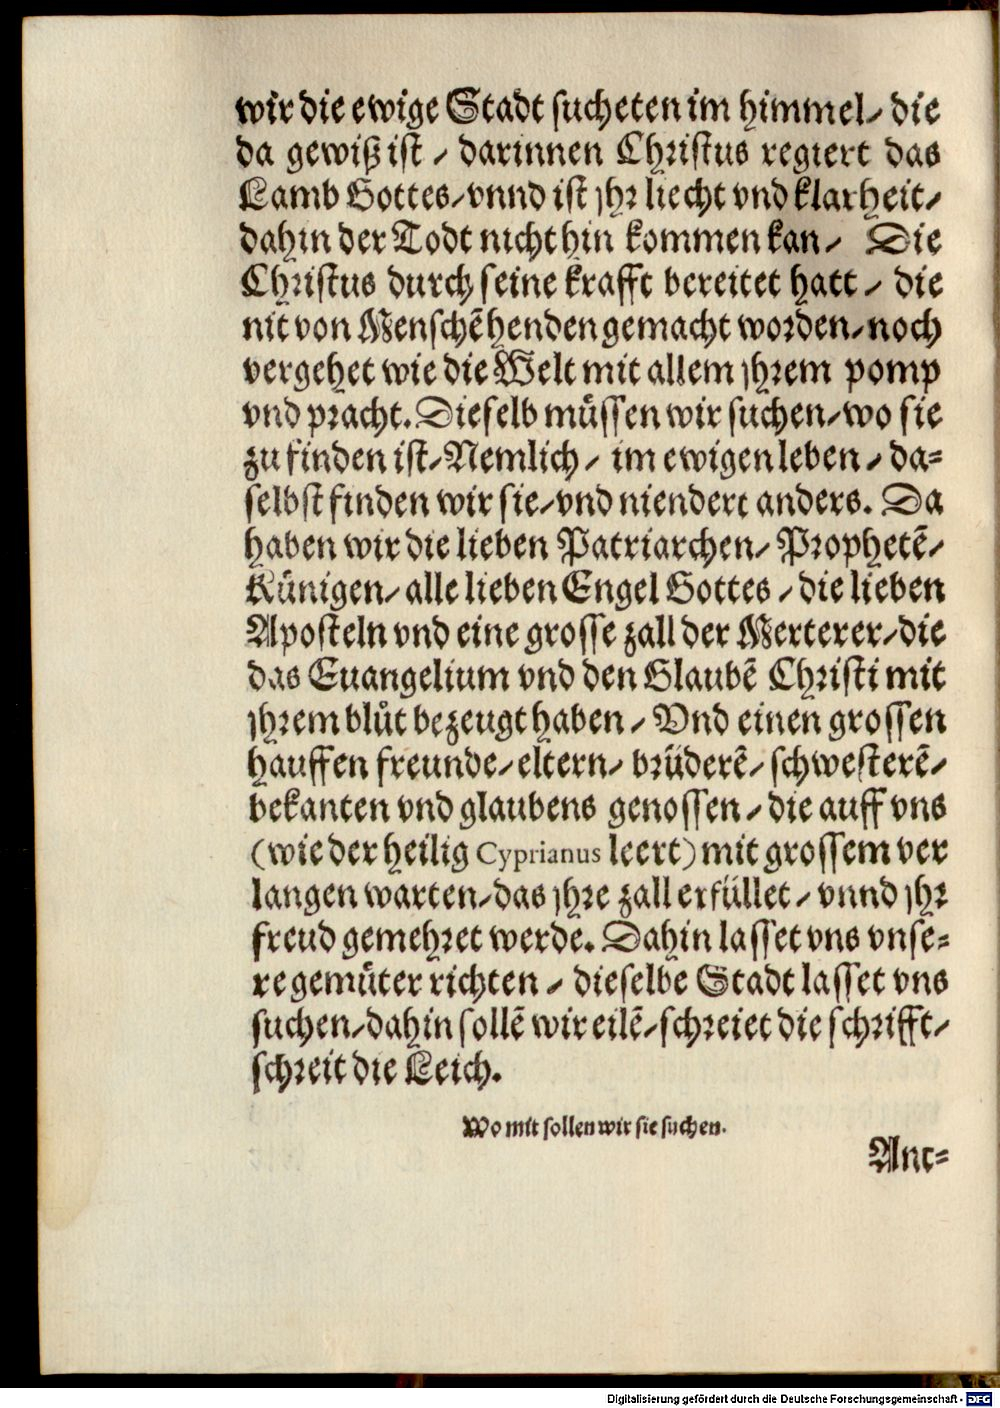 wir die ewige Stadt sucheten im himmel / die
da gewiß ist / darinnen Christus regiert das
Lamb Gottes / vnnd ist jhr liecht vnd klarheit /
dahin der Todt nicht hin kommen kan / Die
Christus durch seine krafft bereitet hatt / die
nit von Menschē henden gemacht worden / noch
vergehet wie die Welt mit allem jhrem pomp
vnd pracht. Dieselb müssen wir suchen / wo sie
zu finden ist / Nemlich / im ewigen leben / da=
selbst finden wir sie / vnd niendert anders. Da
haben wir die lieben Patriarchen / Prophetē /
Künigen / alle lieben Engel Gottes / die lieben
Aposteln vnd eine grosse zall der Merterer / die
das Euangelium vnd den Glaubē Christi mit
jhrem blůt bezeugt haben / Vnd einen grossen
hauffen freunde / eltern / brüderē / schwesterē /
bekanten vnd glaubens genossen / die auff vns
(wie der heilig Cyprianus leert) mit grossem ver
langen warten / das jhre zall erfüllet / vnnd jhr
freud gemehret werde. Dahin lasset vns vnse=
re gemüter richten / dieselbe Stadt lasset vns
suchen / dahin sollē wir eilē / schreiet die schrifft /
schreit die Leich.
Wo mit sollen wir sie suchen.
Ant=
Digitalisierung gefördert durch die Deutsche Forschungsgemeinschaft - DFG